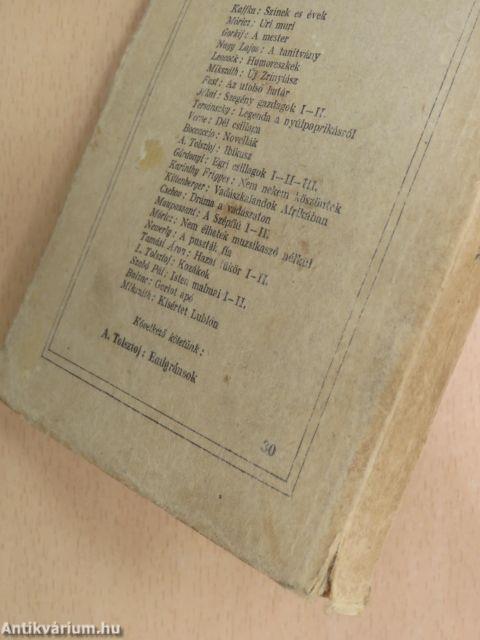 Kaffka: Színek es évek
Móricz: Uri muri
Gorkij: A mester
Nagy Lajos: A tanítvány
Leacock: Humoreszkek
Mikszáth: Új Zrínyiász
Fast: Az utolsó határ
Jókai: Szegény gazdagok I—II.
Tersánszky: Legenda a nyúlpaprikásról
Verne: Dél csillaga
Boccaccio: Novellák
A. Tolsztoj: Ibikusz
Gárdonyi: Egri csillagok I—II—III.
Karinthy Frigyes: Nem nekem köszöntek
Kittenberger: Vadászkalandok Afrikában
Csehov: Dráma a vadászaton
Maupassant: A Szépfiú I—II.
Móricz: Nem élhetek muzsikaszó nélkül
Neverly: A puszták fia
Tamási Áron: Hazai tükör I—II.
L. Tolsztoj: Kozákok
Szabó Pál: Isten malmai I—II.
Balzac: Goriot apó
Mikszáth: Kísértet Lublón
Következő kötetünk:
A. Tolsztoj: Emigránsok
30
Antikvárium.hu